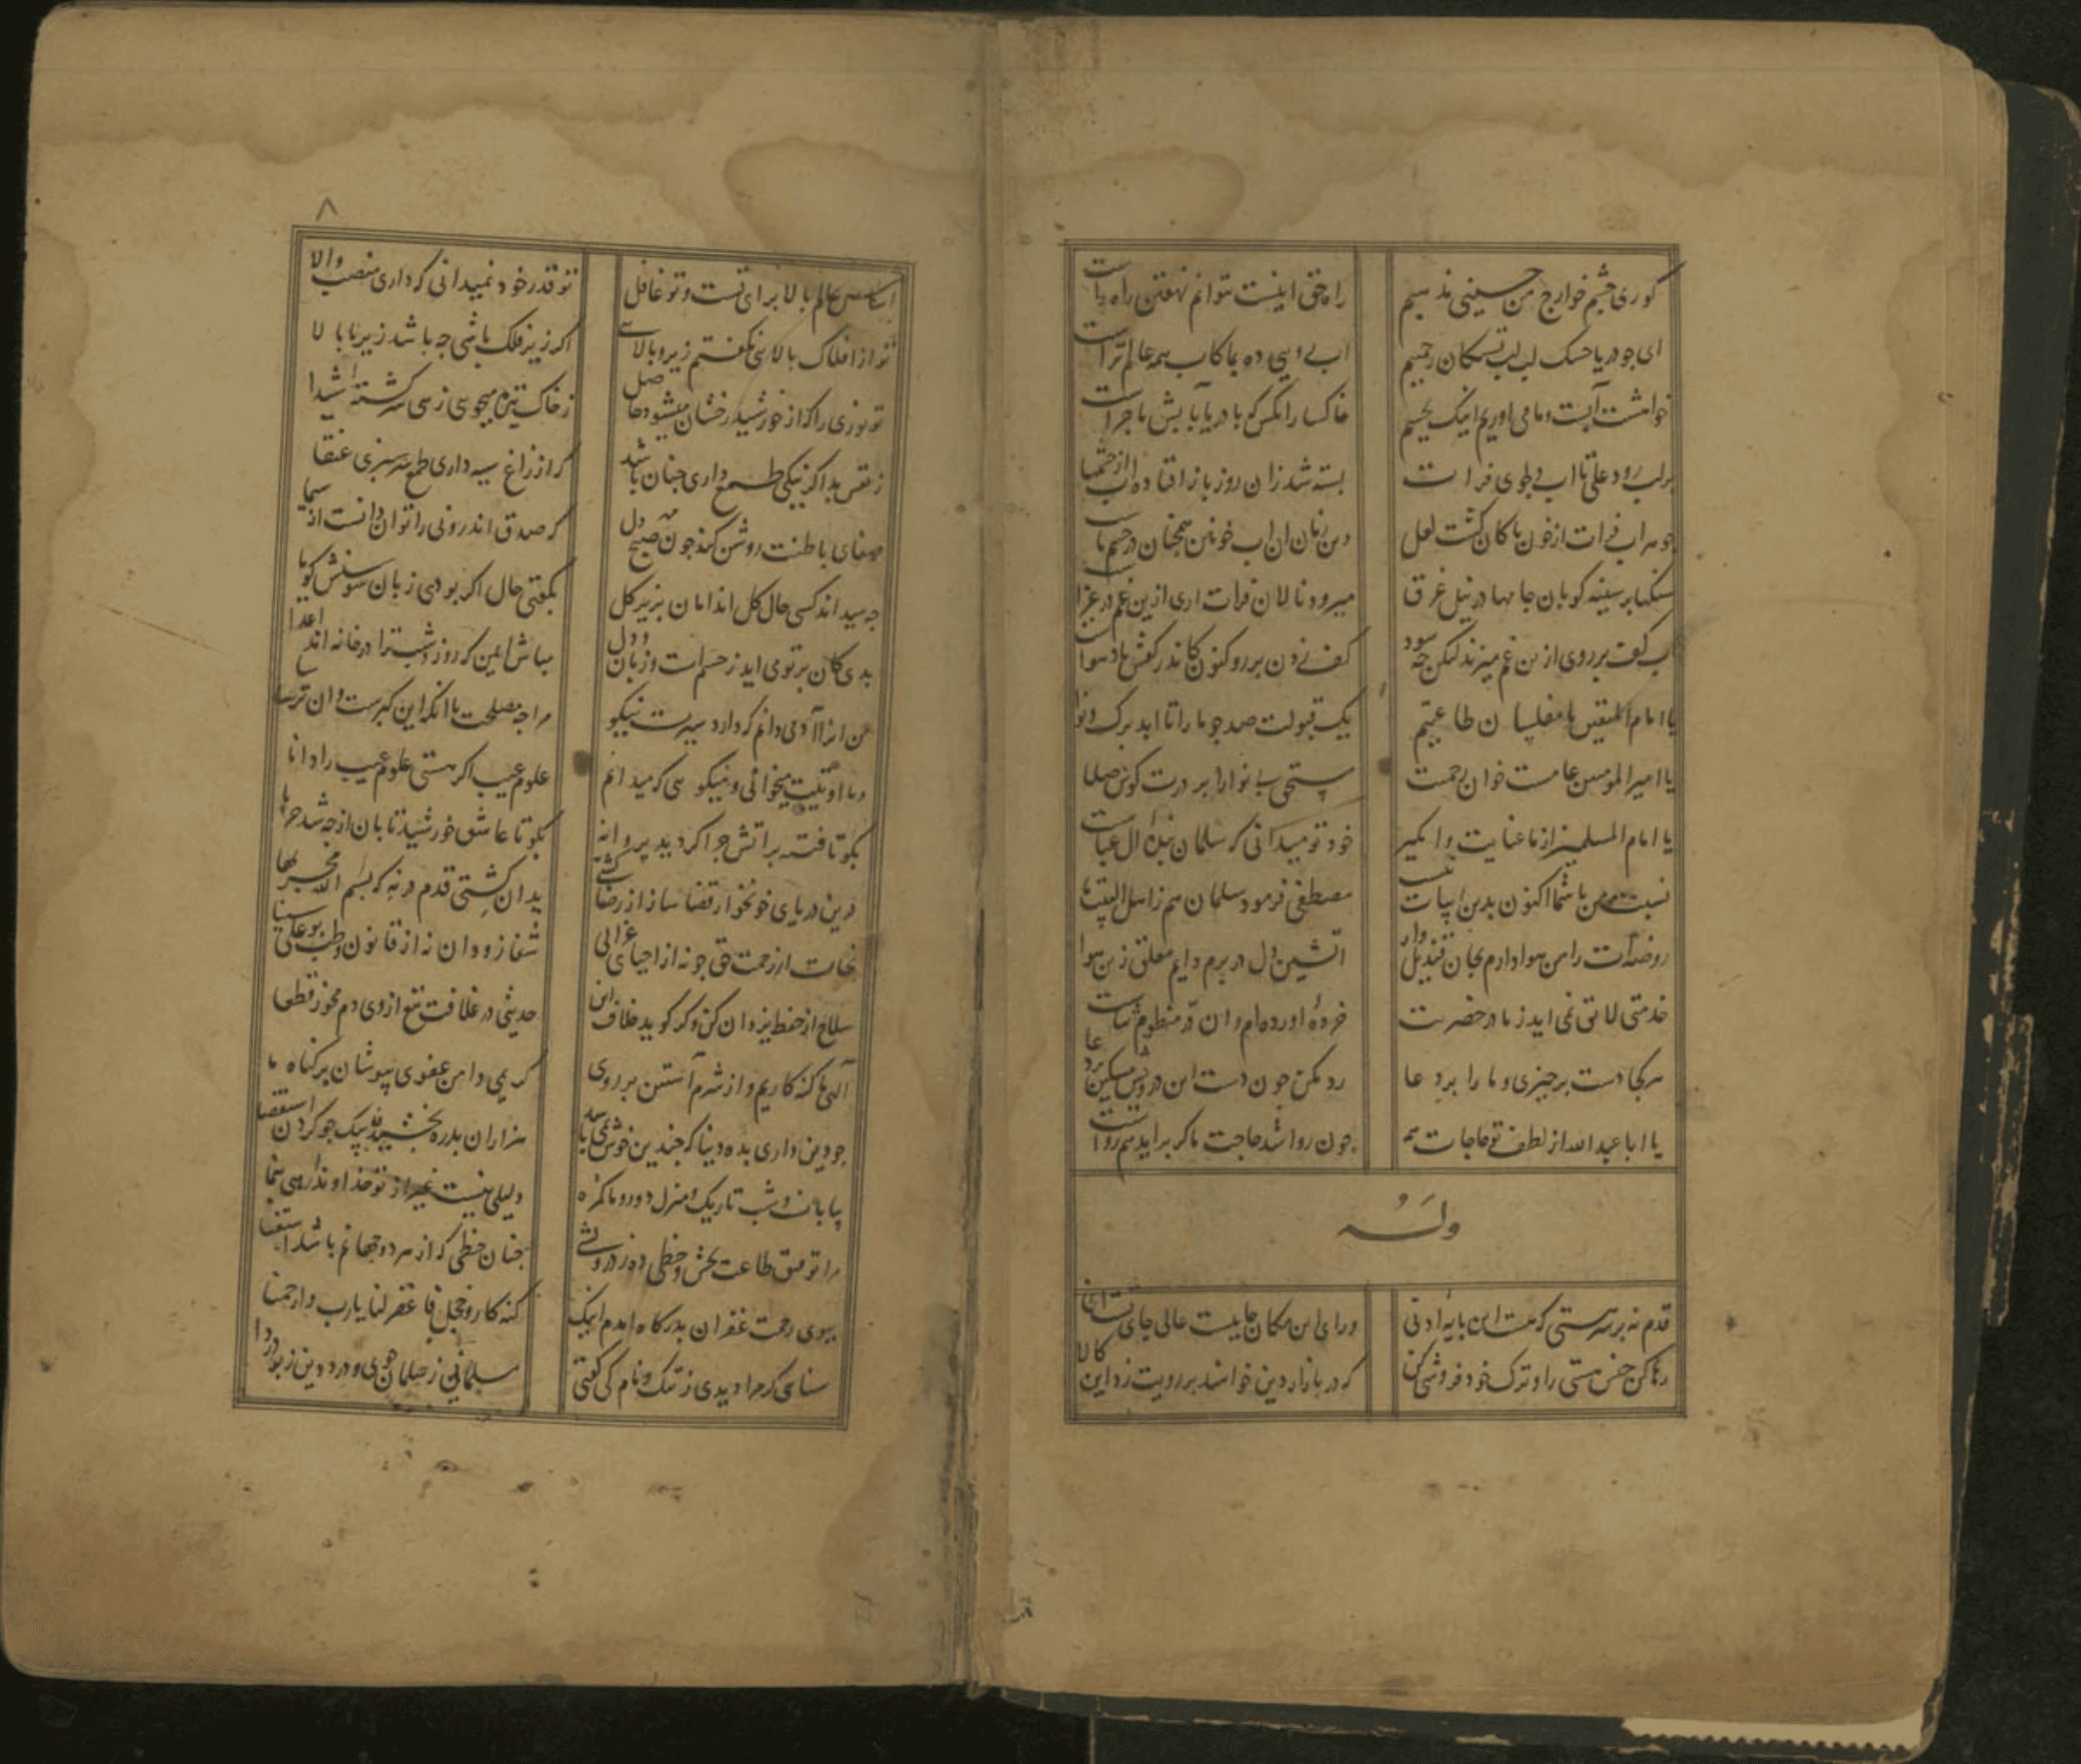 کوری چشم خوارج من حسینی مذهبم
راه حق اینست نتوانم نهفتن راه راست
ای جو دریا خشک لب لب تشنکان رحمتیم
اب روی ده بما کاب همه عالم تراست
خواهشت آبست و ما می اوریم اینک بچشم
خاکسار انکس که با دریا بابش ماجراست
بر لب رود علی تا اب دلجوی فرات
بسته شد زان روز باز افتاده اب از چشمها
جوهر اب فرات از خون پاکان کشت لعل
وین زمان ان اب خونین همچنان در چشم ماست
سنکها بر سینه کوبان جامها در نیل غرق
میرود نالان فرات اری ازین غم در عزاست
اب کف بر روی ازین غم میزند لیکن چه سود
کف زدن بر رو کنون کاندر کفش باد هواست
یا امام المتقین ما مفلسان طاعتیم
یک قبولت صد جو ما را تا ابد برک و نوا
یا امیرالمومنین عامست خوان رحمتت
مستحق بینوا را بر درت کوش صلا
یا امام المسلمین از ما عنایت وامکیر
خود تو میدانی که سلمان بنده آل عباست
نسبت من با شما اکنون بدین ابیات نیست
مصطفی فرمود سلمان هم ز اهل البیت ما
روضه‌ات را من هوادارم بجان قندیل وار
اتشین دل در برم دایم معلق زین هوا
خدمتی لایق نمی اید ز ما در حضرتت
خرده اورده‌ام وان در منظوم ثناست
هر کجا دست بر چیزی و ما را بر دعا
رد مکن چون دست این درویش مسکین بر دعا
یا ابا عبدالله از لطف تو حاجات همه
چون روا شد حاجت ما کر براید هم رواست
وله
قدم نه بر سر هستی که هست این پایه ادنی
ورای این مکان جاییست عالی جای تست انجا
رها کن جنس هستی را و ترک خود فروشی کن
که در بازار دین خواهند بر رویت زد این کالا
۸
اساس عالم بالا برای تست و تو غافل
تو قدر خود نمیدانی که داری منصب والا
تو از افلاک بالایی نکفتم زیر و بالایی
اکر زیر فلک باشی جه باشد زیر یا بالا
تو نوری را که از خورشید رخشان میشود حاصل
ز خاک تیره میجویی زهی سرکشته شیدا
ز نفس بد اکر نیکی طمع داری چنان باشد
که از زاغ سیه داری طمع سرسبزی عنقا
صفای باطنت روشن کند جون صبح
که صدق اندرونی را توان دانست از سیما
جه میداند کسی حال کل اندامان بزیر کل
بکفتی حال اکر بودی زبان سوسنش کویا
بدی کان بر تو می اید ز چشم است و زبان و دل
مباش ایمن که روز و شب ترا در خانه اند اعدا
من انرا آدمی دانم که دارد سیرت نیکو
مرا جه مصلحت با انکه این کبرست وان ترسا
وما اوتیت میخوانی و نیکو می که میدانم
علوم غیب اکر هستی علوم غیب را دانا
بکو تا فتنه بر اتش جرا کردید پروانه
بکو تا عاشق خورشید تابان از جه شد حربا
درین دریای خونخوار از قضا ساز از رضا کشتی
بدان کشتی قدم در نه که بسم الله مجریها
نجات از رحمت حق جو نه از احیای غزالی
شفا زو دان نه از قانون و طب بوعلی سینا
سلاح از حفظ یزدان کن و کر کوید خلاف این
حدیثی در غلافت تیغ از وی دم مخور قطعا
الهی ما کنه کاریم و از شرم آستین بر روی
کریمی دامن عفوی بپوشان بر کناه ما
جو دین داری بده دنیا که چندین خوش نمی باشد
هزاران بدره بخشیدن بیک جو کردن استقصا
بیابان و شب تاریک و منزل دور و ما کمره
دلیلی نیست غیر از تو خداوندا رهی بنما
مرا توفیق طاعت بخش و حظی ده ز درویشی
چنان حظی که از هر دو جهانم باشد استغنا
ببوی رحمت غفران بدرکاه امدم اینک
کنه کار و خجل فاغفر لنا یارب وارحمنا